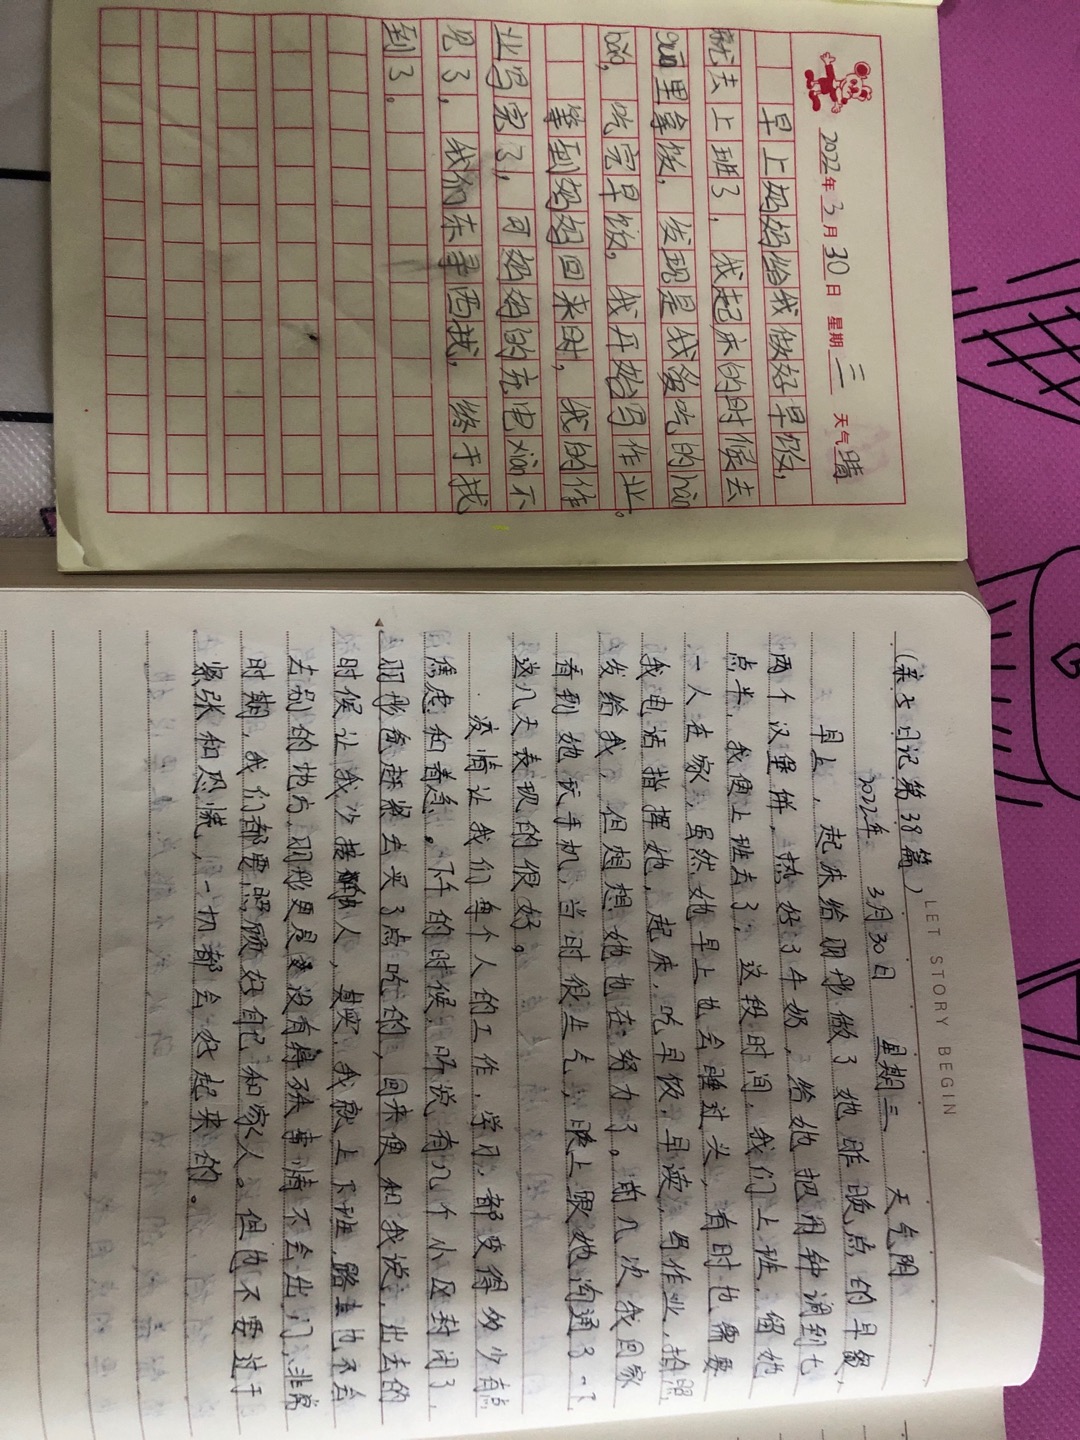 2022年3月30日 星期三 天气晴
早上妈妈给我做好早饭，
就去上班了，我起床的时候去
guō里拿饭，发现是我爱吃的hàn
bǎo，吃完早饭，我开始写作业。
等到妈妈回来时，我的作
业写完了，可妈妈的充电xiàn不
见了，我们东寻西找，终于找
到了。
(亲子日记第38篇)
LET STORY BEGIN
2022年 3月30日 星期三 天气阴
早上，起床给朋彤做了她昨晚点的早餐，
两个汉堡饼，热好了牛奶，给她把闹钟调到七
点半，我便上班去了，这段时间，我们上班，留她
一人在家，虽然她早上也会睡过头，有时也需要
我电话指挥她，起床，吃早饭，早读，写作业，拍照
发给我，但想想她也在努力了。前几次我回家
看到她玩手机，当时很生气，晚上跟她沟通了一下
这几天表现的很好。
疫情让我们每个人的工作，学习，都变得多少有点
焦虑和着急。下午的时候，听说有几个小区封闭了，
朋彤爸赶紧去买了点吃的，回来便和我说，出去的
时候让我少接触人，其实，我就上下班，路上也不会
去别的地方，朋彤更是没有特殊事情不会出门，非常
时期，我们都要照顾好自己和家人。但也不要过于
紧张和恐慌，一切都会好起来的。